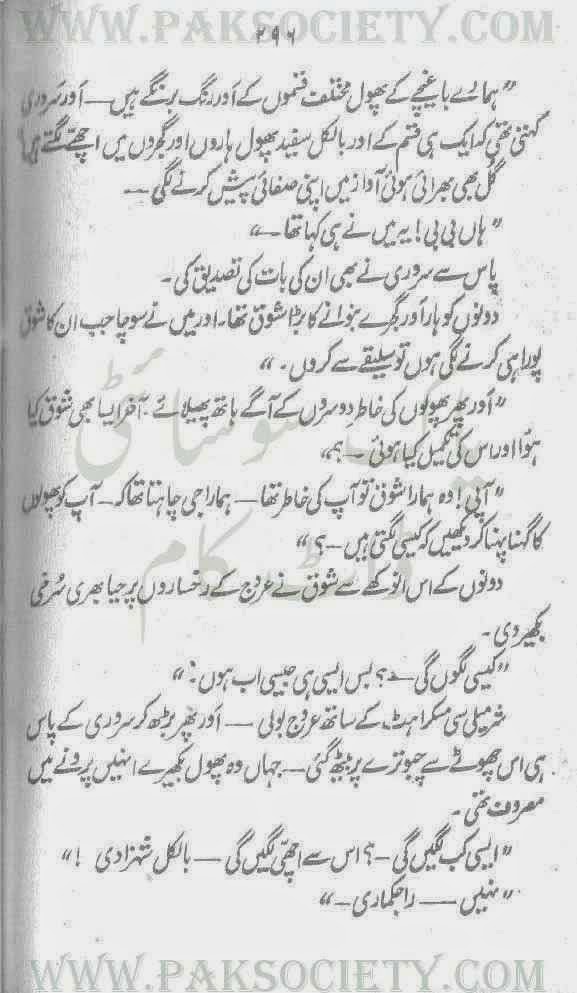 WWW.PAKSOCIETY.COM
۲۹۶
"ہمارے باغیچے کے پھول مختلف قسموں کے اَور رنگ برنگے ہیں — اَور سَروَری
کہتی تھی کہ ایک ہی قسم کے اور بالکل سفید پھول ہاروں اور گجروں میں اچھے لگتے ہیں"
گل بھی بھرائی ہوئی آواز میں اپنی صفائی پیش کرنے لگی —
"ہاں بی بی! یہ میں نے ہی کہا تھا —"
پاس سے سروری نے بھی ان کی بات کی تصدیق کی۔
دونوں کو ہار اَور گجرے بنوانے کا بڑا شوق تھا۔ اور میں نے سوچا جب ان کا شوق
پورا ہی کرنے لگی ہوں تو سلیقے سے کروں۔"
"اَور پھر پھولوں کی خاطر دوسروں کے آگے ہاتھ پھیلائے۔ آخر ایسا بھی شوق کیا
ہوا اور اس کی تکمیل کیا ہوئی —؟"
"آپی! وہ ہمارا شوق تو آپ کی خاطر تھا — ہمارا جی چاہتا تھا کہ — آپ کو پھولوں
کا گہنا پہنا کر دیکھیں کہ کیسی لگتی ہیں —؟"
دونوں کے اس انوکھے سے شوق نے عروج کے رخساروں پر حیا بھری سُرخی
بکھیر دی۔
"کیسی لگوں گی —؟ بس ایسی ہی جیسی اب ہوں۔"
شرمیلی سی مسکراہٹ کے ساتھ عروج بولی — اَور پھر بڑھ کر سروری کے پاس
ہی اس چھوٹے سے چبوترے پر بیٹھ گئی — جہاں وہ پھول بکھیرے انہیں پرونے میں
مصروف تھی۔
"ایسی کب لگیں گی —؟ اس سے اچھی لگیں گی — بالکل شہزادی !"
"نہیں — راجکماری —"
پاک سوسائٹی
ڈاٹ کام
WWW.PAKSOCIETY.COM